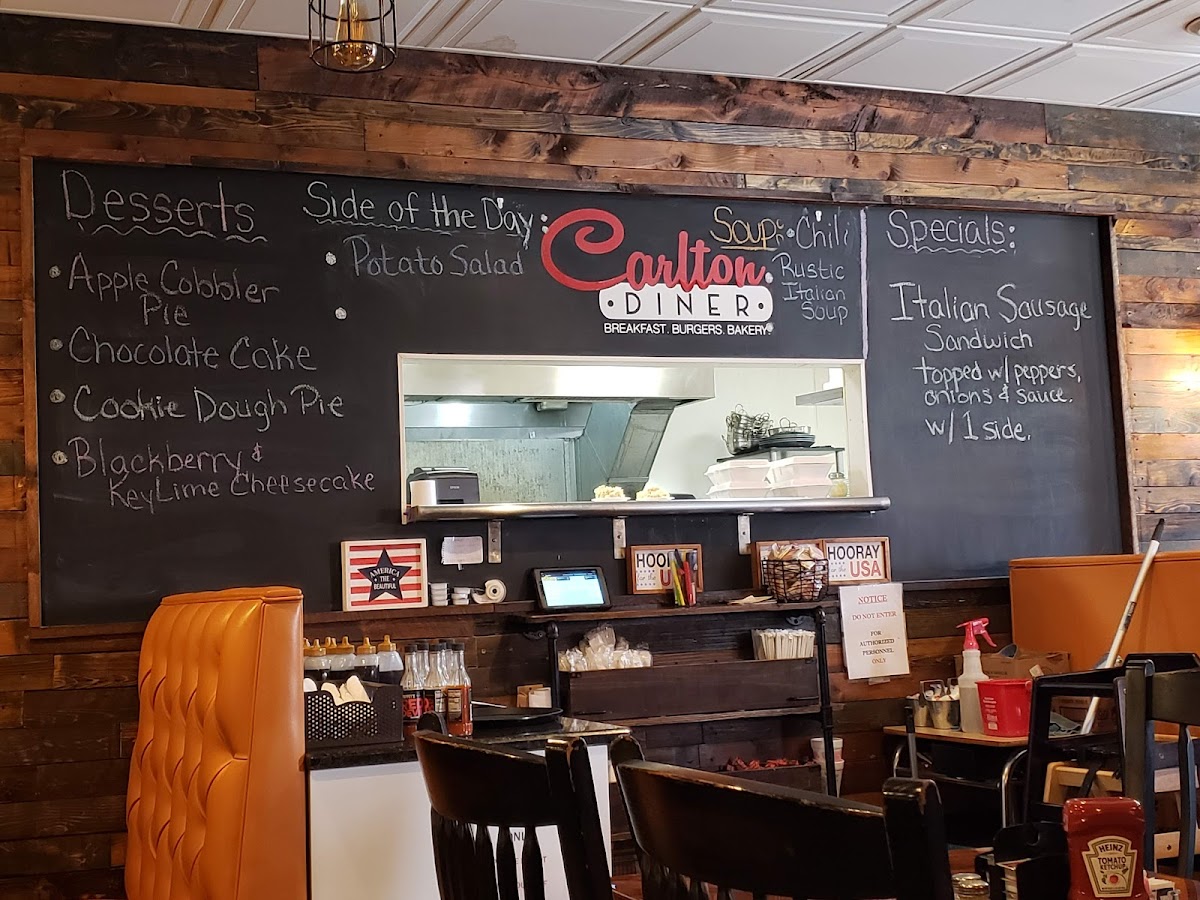 Desserts
Apple Cobbler
Pie
Chocolate Cake
Cookie Dough Pie
Blackberry &
Key Lime Cheesecake
Side of the Day:
Potato Salad
Carlton
·DINER·
BREAKFAST. BURGERS. BAKERY
Soup: Chili
Rustic
Italian
Soup
Specials:
Italian Sausage
Sandwich
topped w/ peppers,
onions & sauce.
w/ 1 side.
EPSON
AMERICA
THE
BEAUTIFUL
HOO
for the U
HOORAY
USA
NOTICE
DO NOT ENTER
FOR
AUTHORIZED
PERSONNEL
ONLY
HEINZ
TOMATO
KETCHUP